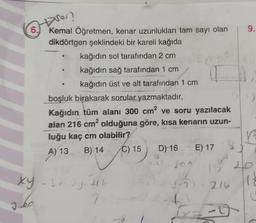 sor?
6. Kemal Öğretmen, kenar uzunlukları tam sayı olan
dikdörtgen şeklindeki bir kareli kağıda
• kağıdın sol tarafından 2 cm
• kağıdın sağ tarafından 1 cm
• kağıdın üst ve alt tarafından 1 cm
boşluk bırakarak sorular yazmaktadır.
Kağıdın tüm alanı 300 cm² ve soru yazılacak
alan 216 cm² olduğuna göre, kısa kenarın uzun-
luğu kaç cm olabilir?
A) 13 B) 14 C) 15 D) 16 E) 17
9.
xy
216